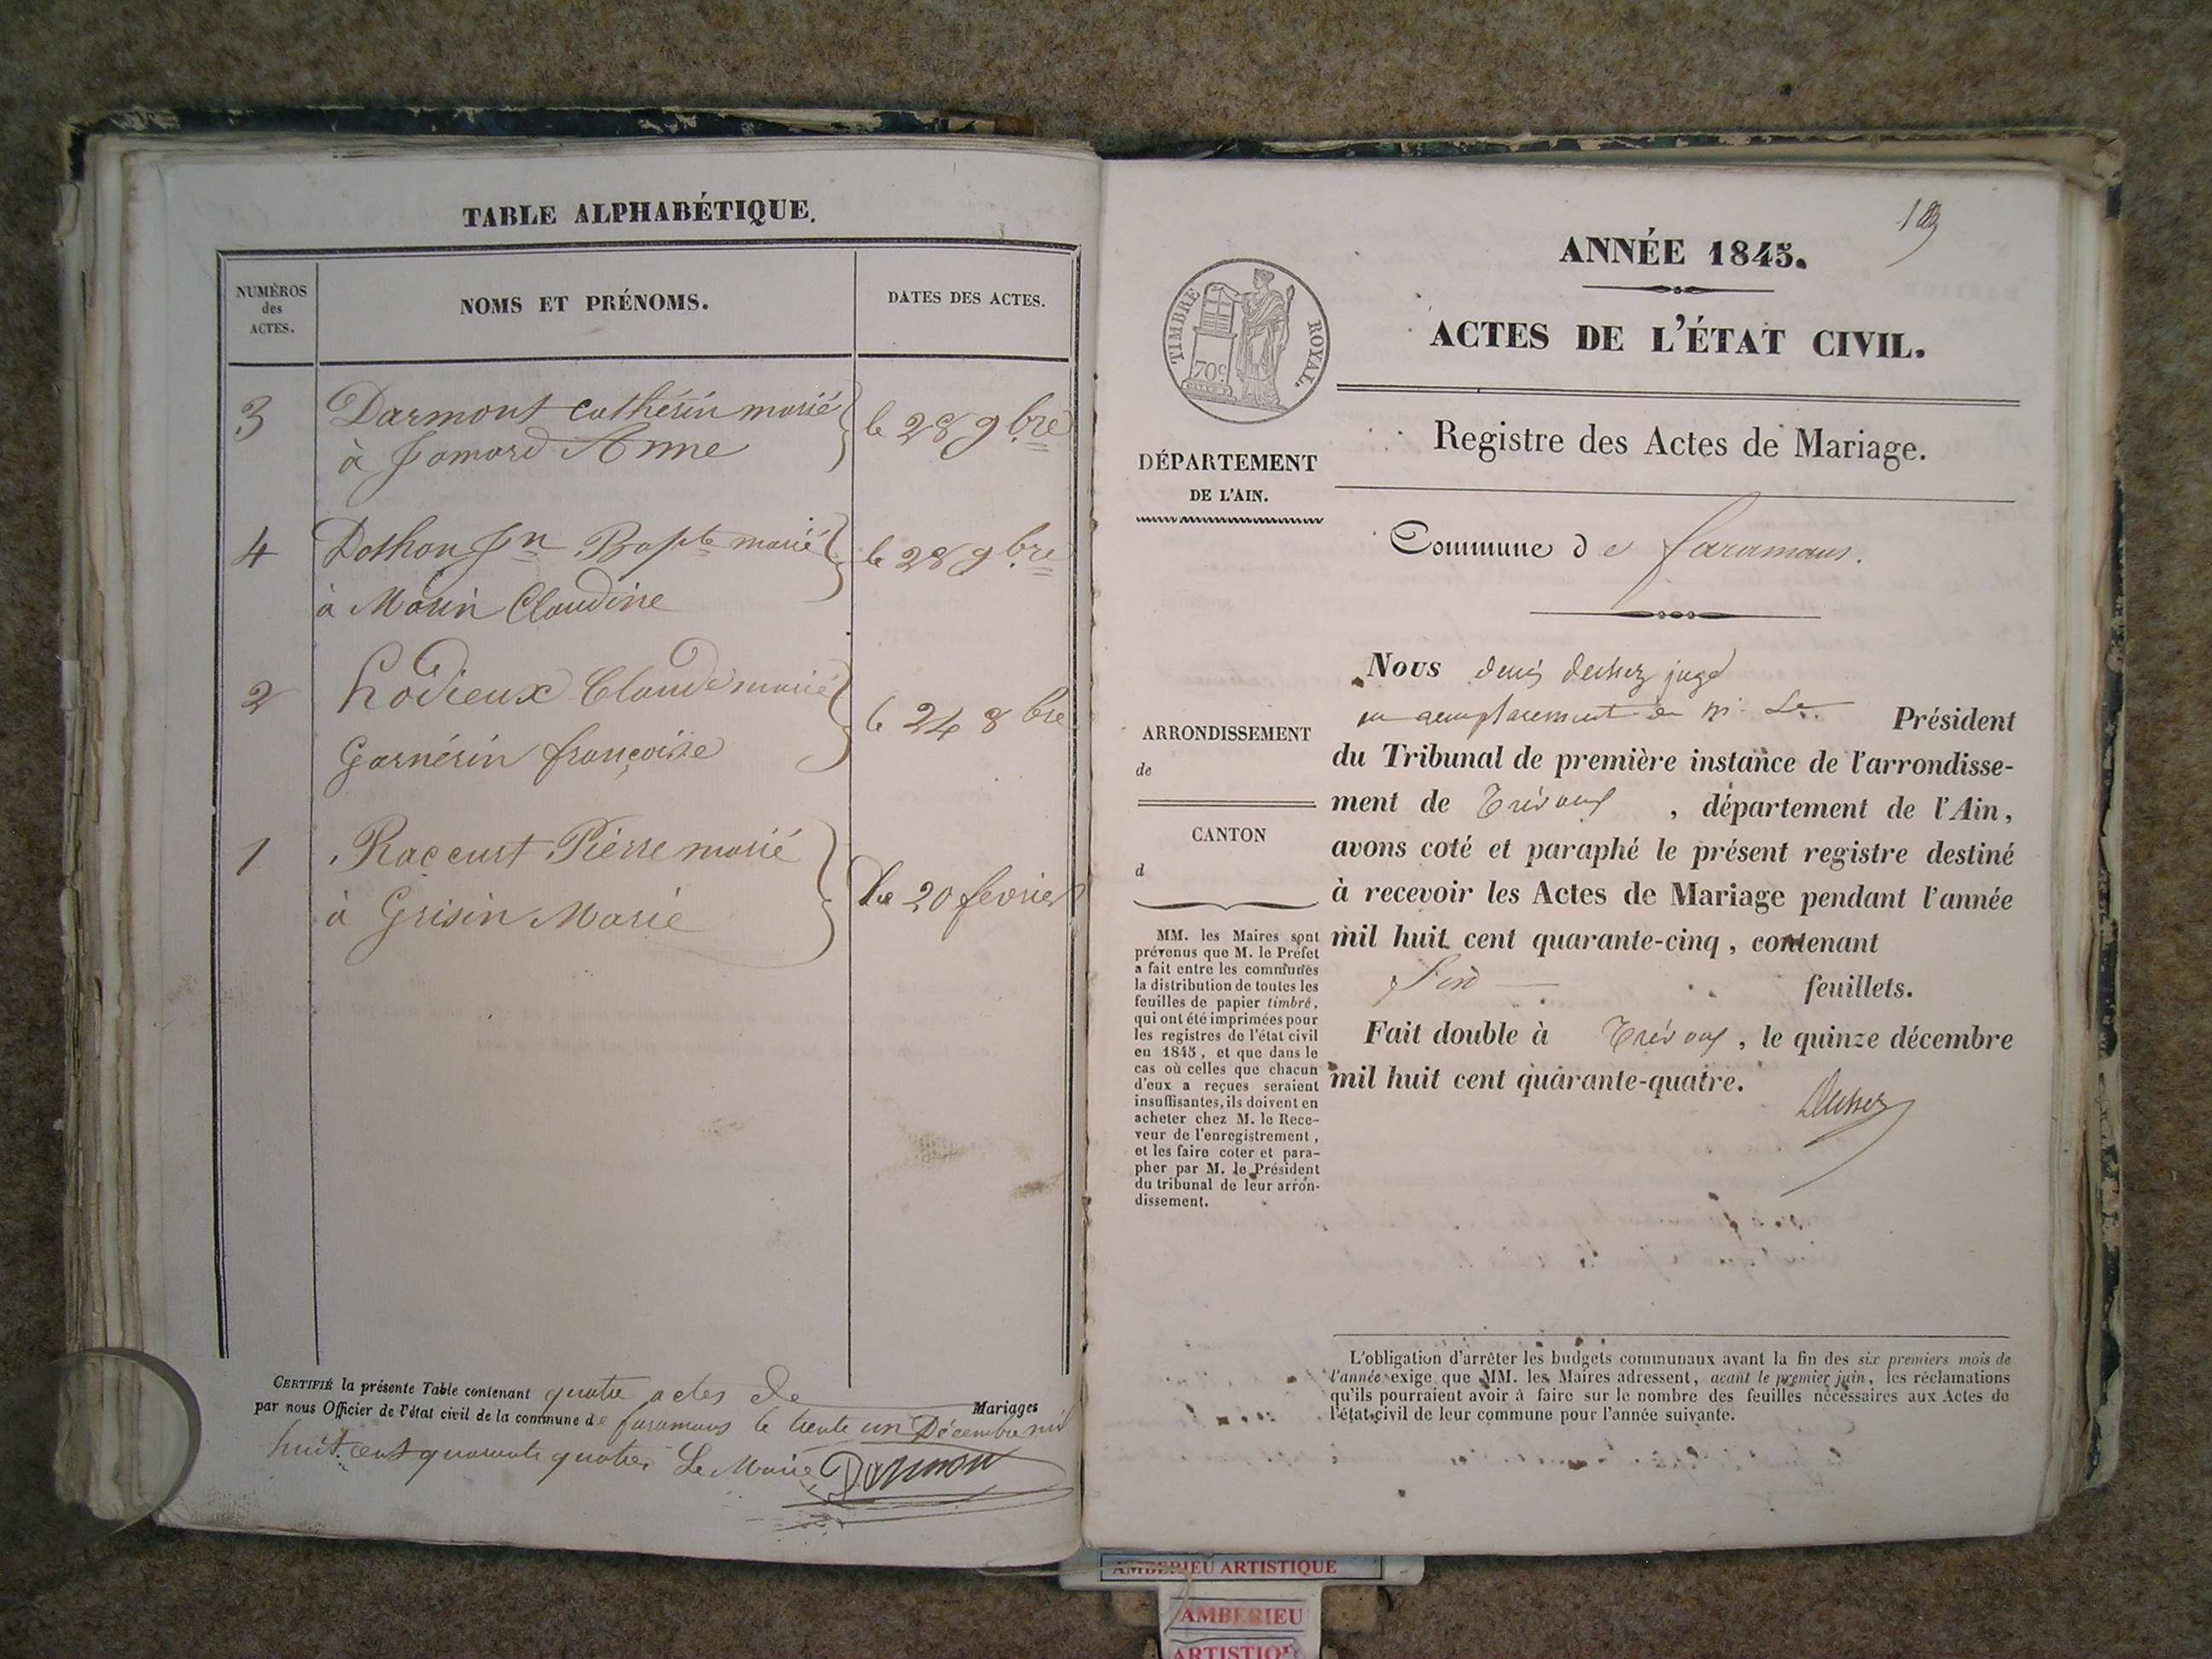 TABLE ALPHABÉTIQUE.
NUMÉROS
des
ACTES.
NOMS ET PRÉNOMS.
DATES DES ACTES.
3 Darmont Cathérin marié le 28 9bre
à Jomard Anne
4 Dothon Jn Bapte marié le 28 9bre
à Morin Claudine
2 Lodieux Claude marié le 24 8bre
Garnérin françoise
1 Raccurt Pierre marié le 20 fevrier
à Grisin Marie
CERTIFIÉ la présente Table contenant quatre actes de Mariages
par nous Officier de l'état civil de la commune de faramans le trente un Décembre mil
huit cent quarante quatre. Le Maire Darmont
183
ANNÉE 1845.
TIMBRE ROYAL.
70c
ACTES DE L'ÉTAT CIVIL.
Registre des Actes de Mariage.
DÉPARTEMENT
DE L'AIN.
Commune de faramans.
ARRONDISSEMENT
de
CANTON
d
MM. les Maires sont
prévenus que M. le Préfet
a fait entre les communes
la distribution de toutes les
feuilles de papier timbré,
qui ont été imprimées pour
les registres de l'état civil
en 1845, et que dans le
cas où celles que chacun
d'eux a reçues seraient
insuffisantes, ils doivent en
acheter chez M. le Rece-
veur de l'enregistrement,
et les faire coter et para-
pher par M. le Président
du tribunal de leur arron-
dissement.
Nous denis juge
en remplacement de M. Le Président
du Tribunal de première instance de l'arrondisse-
ment de Trévoux, département de l'Ain,
avons coté et paraphé le présent registre destiné
à recevoir les Actes de Mariage pendant l'année
mil huit cent quarante-cinq, contenant
feuillets.
Fait double à Trévoux, le quinze décembre
mil huit cent quarante-quatre.
L'obligation d'arrêter les budgets communaux avant la fin des six premiers mois de
l'année exige que MM. les Maires adressent, avant le premier juin, les réclamations
qu'ils pourraient avoir à faire sur le nombre des feuilles nécessaires aux Actes de
l'état civil de leur commune pour l'année suivante.
AMBERIEU ARTISTIQUE
AMBERIEU
ARTISTIQUE